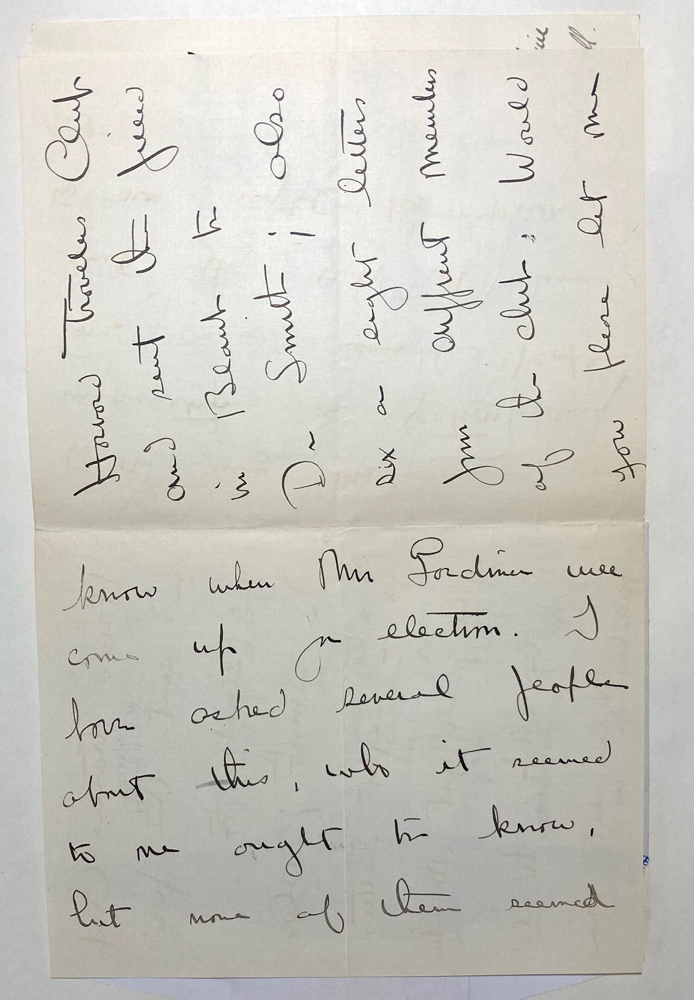 Harvard Travelers Club
and sent the filled
in Blank to
Dr Smith; also
six or eight letters
from different members
of the club; Would
you please let me
know when Mr Gardiner will
come up for election. I
have asked several people
about this, who it seemed
to me ought to know,
but none of them seemed